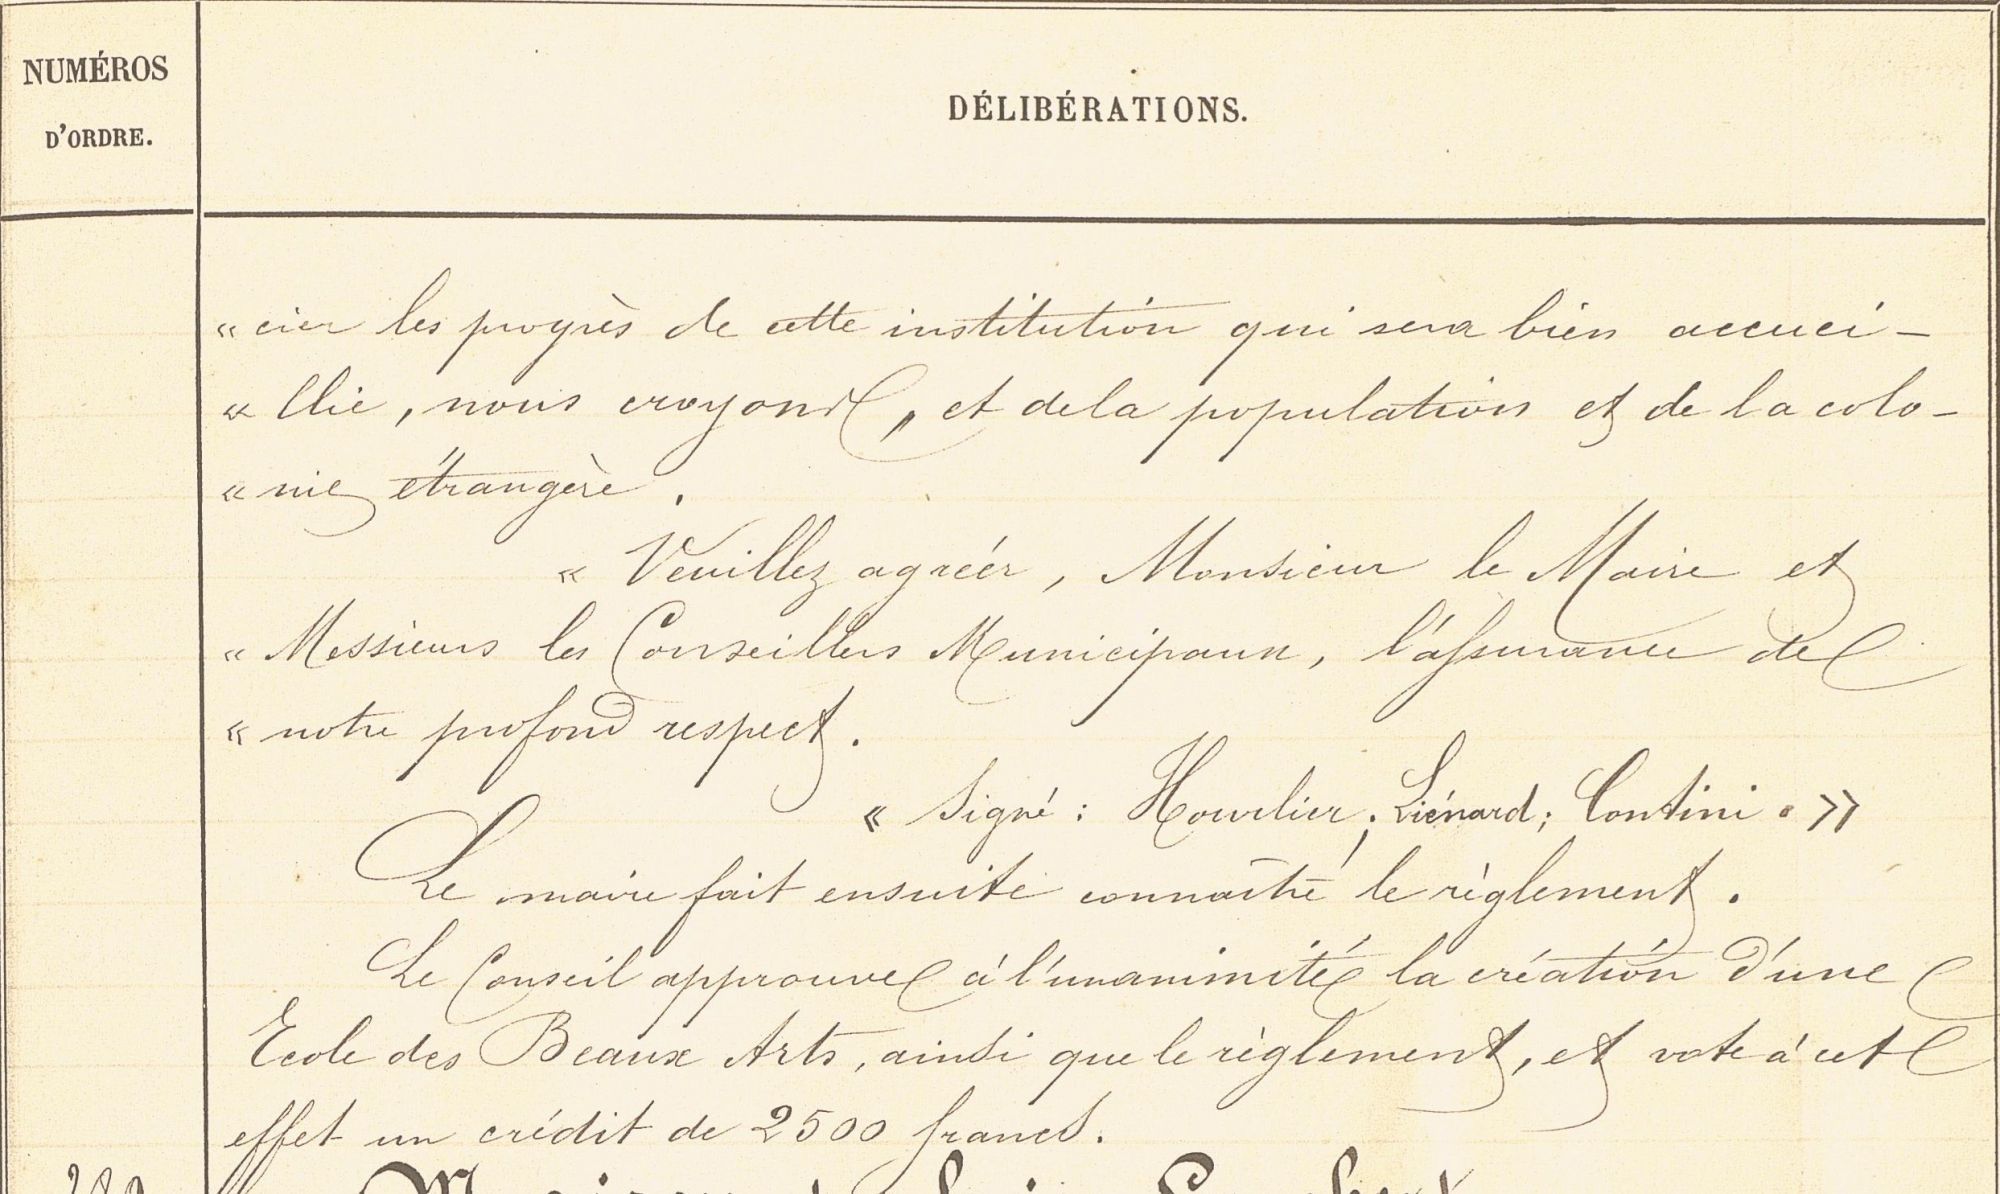 NUMÉROS
D'ORDRE.
DÉLIBÉRATIONS.
« cier les progrès de cette institution qui sera bien accuei-
« llie, nous croyons, et de la population et de la colo-
« nie étrangère.
« Veuillez agréer, Monsieur le Maire et
« Messieurs les Conseillers Municipaux, l'assurance de
« notre profond respect.
« Signé : Hourlier ; Liénard ; Contini. »
Le maire fait ensuite connaître le règlement.
Le Conseil approuve à l'unanimité la création d'une
Ecole des Beaux Arts, ainsi que le règlement, et vote à cet
effet un crédit de 2500 francs.